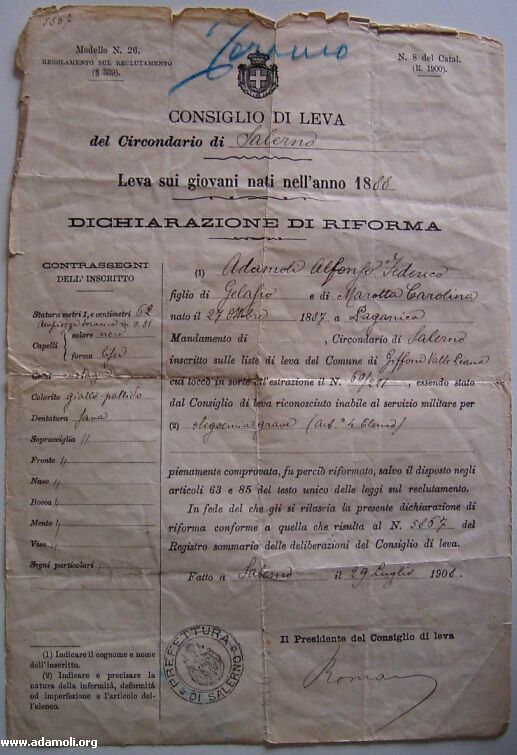 5867
Modello N. 26.
REGOLAMENTO SUL RECLUTAMENTO
(§ 339).
Teramo
N. 8 del Catal.
(R. 1900).
CONSIGLIO DI LEVA
del Circondario di Salerno
Leva sui giovani nati nell'anno 1888
DICHIARAZIONE DI RIFORMA
CONTRASSEGNI
DELL'INSCRITTO
Statura metri 1, e centimetri 62
toracica m. 0.81
Capelli colore neri
forma lisci
Occhi castagni
Colorito giallo-pallido
Dentatura sana
Sopracciglia //
Fronte //
Naso //
Bocca //
Mento //
Viso //
Segni particolari //
(1) Adamoli Alfonso Federico
figlio di Gelasio e di Marotta Carolina
nato il 27 Ottobre 1887 a Paganica
Mandamento di , Circondario di Salerno
inscritto sulle liste di leva del Comune di Giffoni Valle Piana
cui toccò in sorte all'estrazione il N. 69/281, essendo stato
dal Consiglio di leva riconosciuto inabile al servizio militare per
(2) oligoemia grave (Art. 4 Elenco)
pienamente comprovata, fu perciò riformato, salvo il disposto negli
articoli 63 e 85 del testo unico delle leggi sul reclutamento.
In fede del che gli si rilascia la presente dichiarazione di
riforma conforme a quella che risulta al N. 5867 del
Registro sommario delle deliberazioni del Consiglio di leva.
Fatto a Salerno il 29 Luglio 1908.
(1) Indicare il cognome e nome
dell'inscritto.
(2) Indicare e precisare la
natura della infermità, deformità
od imperfezione e l'articolo del-
l'elenco.
PREFETTURA DI SALERNO
Il Presidente del Consiglio di leva
www.adamoli.org